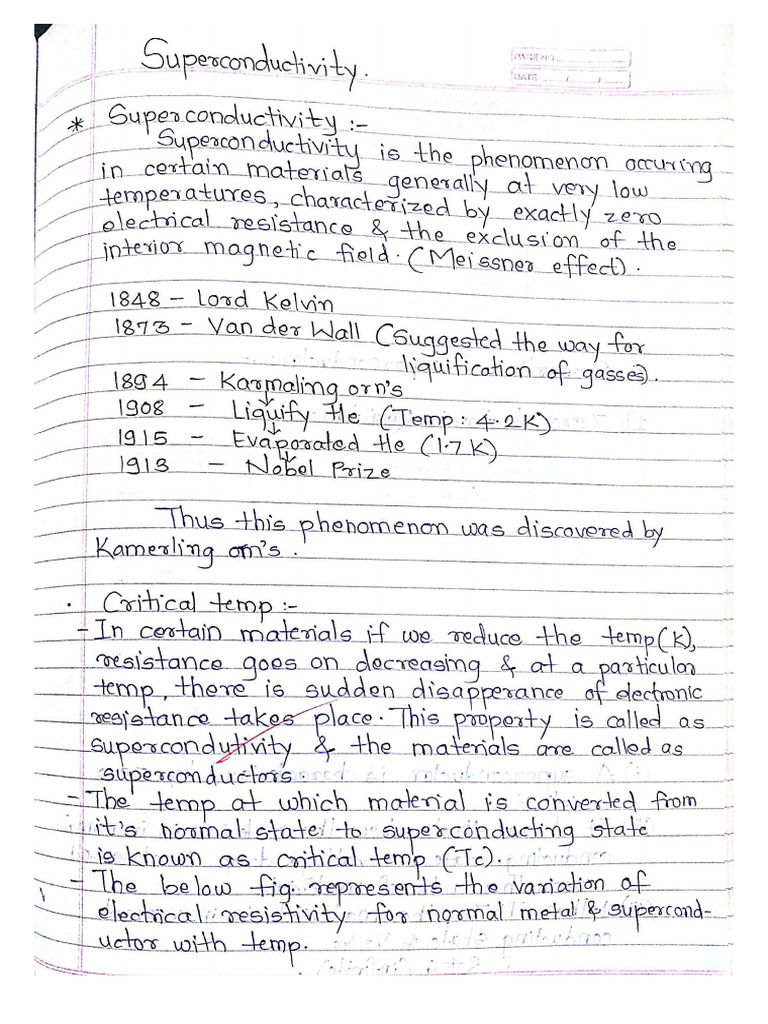 Superconductivity.
PAGE NO.
DATE / /
* Superconductivity :-
Superconductivity is the phenomenon occuring
in certain materials generally at very low
temperatures, characterized by exactly zero
electrical resistance & the exclusion of the
interior magnetic field. (Meissner effect).
1848 - Lord Kelvin
1873 - Van der Wall (Suggested the way for
liquification of gasses).
1894 - Karmaling orn's
1908 - Liquify He (Temp: 4.2K)
1915 - Evaporated He (1.7K)
1913 - Nobel Prize
Thus this phenomenon was discovered by
Kamerling orn's.
. Critical temp :-
- In certain materials if we reduce the temp(K),
resistance goes on decreasing & at a particular
temp, there is sudden disapperance of electronic
resistance takes place. This property is called as
supercondutivity & the materials are called as
superconductors
- The temp at which material is converted from
it's normal state to superconducting state
is known as critical temp (Tc).
- The below fig. represents the variation of
electrical resistivity for normal metal & supercond-
uctor with temp.